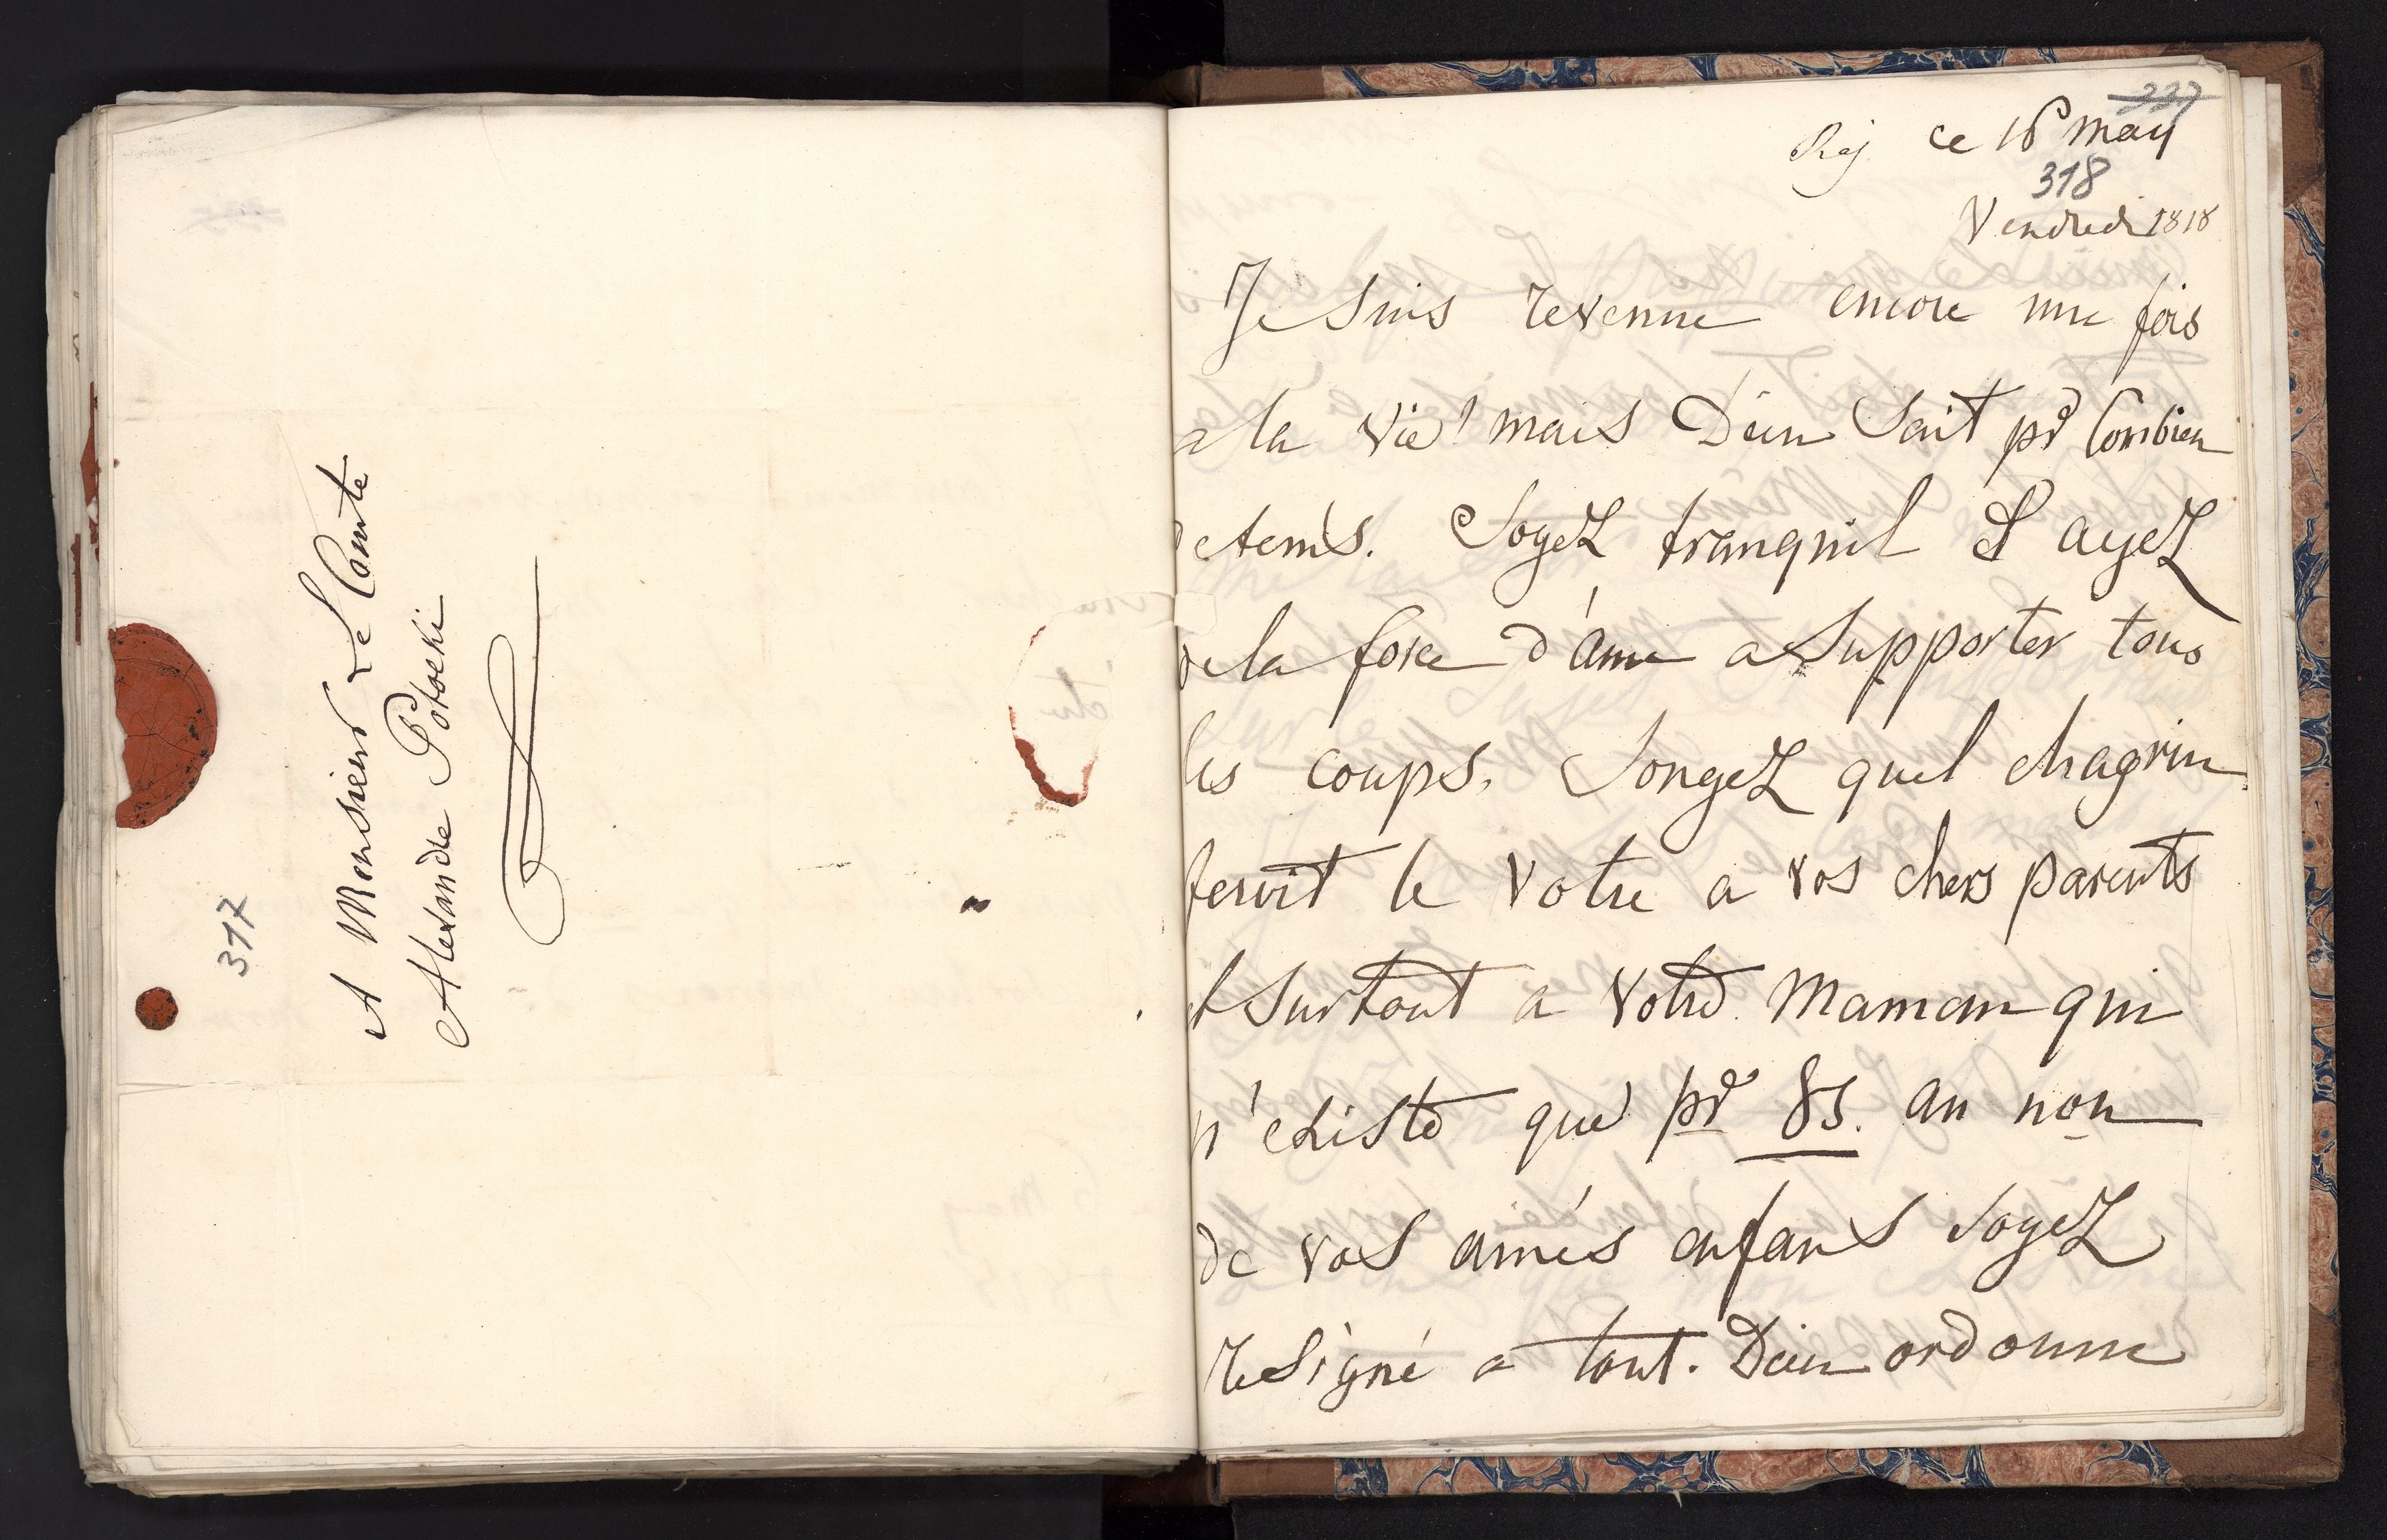 A Monsieur Le Comte
Alexandre Potocki
317
337
Rej ce 16 may
318
Vendredi 1818
Je suis revenue encore une fois
a la vie! mais Dieu sait pr Combien
de tems. Soyez tranquil et ayez
de la force d'ame a supporter tous
les coups. Songez quel chagrin
feroit le Votre a vos chers parents
et surtout a Votre Maman qui
n'existe que pr vs. au nom
de vos aimés enfans soyez
resigné a tout. Dieu ordonne